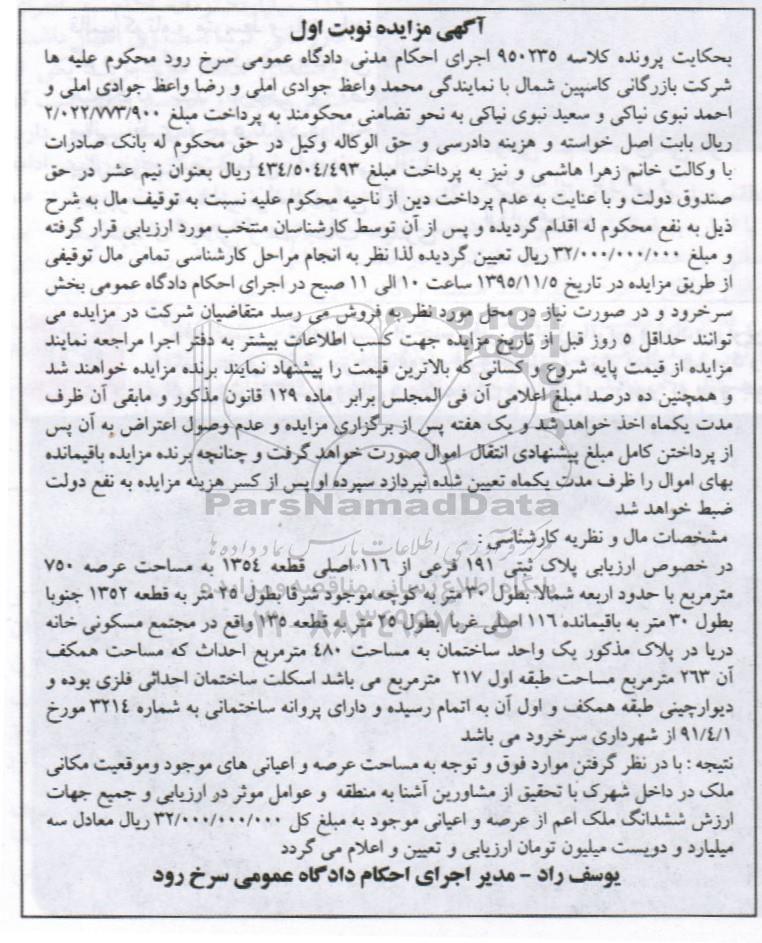 آگهی مزایده نوبت اول
بحکایت پرونده کلاسه ۹۵۰۲۳۵ اجرای احکام مدنی دادگاه عمومی سرخ رود محکوم علیه ها
شرکت بازرگانی کاسپین شمال با نمایندگی محمد واعظ جوادی املی و رضا واعظ جوادی املی و
احمد نبوی نیاکی و سعید نبوی نیاکی به نحو تضامنی محکومند به پرداخت مبلغ ۲/۰۲۲/۷۷۳/۹۰۰
ریال بابت اصل خواسته و هزینه دادرسی و حق الوکاله وکیل در حق محکوم له بانک صادرات
با وکالت خانم زهرا هاشمی و نیز به پرداخت مبلغ ۴۳۴/۵۰۴/۴۹۳ ریال بعنوان نیم عشر در حق
صندوق دولت و با عنایت به عدم پرداخت دین از ناحیه محکوم علیه نسبت به توقیف مال به شرح
ذیل به نفع محکوم له اقدام گردیده و پس از آن توسط کارشناسان منتخب مورد ارزیابی قرار گرفته
و مبلغ ۳۲/۰۰۰/۰۰۰/۰۰۰ ریال تعیین گردیده لذا نظر به انجام مراحل کارشناسی تمامی مال توقیفی
از طریق مزایده در تاریخ ۱۳۹۵/۱۱/۵ ساعت ۱۰ الی ۱۱ صبح در اجرای احکام دادگاه عمومی بخش
سرخرود و در صورت نیاز در محل مورد نظر به فروش می رسد متقاضیان شرکت در مزایده می
توانند حداقل ۵ روز قبل از تاریخ مزایده جهت کسب اطلاعات بیشتر به دفتر اجرا مراجعه نمایند
مزایده از قیمت پایه شروع و کسانی که بالاترین قیمت را پیشنهاد نمایند برنده مزایده خواهند شد
و همچنین ده درصد مبلغ اعلامی آن فی المجلس برابر ماده ۱۲۹ قانون مذکور و مابقی آن ظرف
مدت یکماه اخذ خواهد شد و یک هفته پس از برگزاری مزایده و عدم وصول اعتراض به آن پس
از پرداختن کامل مبلغ پیشنهادی انتقال اموال صورت خواهد گرفت و چنانچه برنده مزایده باقیمانده
بهای اموال را ظرف مدت یکماه تعیین شده نپردازد سپرده او پس از کسر هزینه مزایده به نفع دولت
ضبط خواهد شد
ParsNamadData
مشخصات مال و نظریه کارشناسی :
مرکز فرآوری اطلاعات پارس نماد داده ها
در خصوص ارزیابی پلاک ثبتی ۱۹۱ فرعی از ۱۱۶ اصلی قطعه ۱۳۵۴ به مساحت عرصه ۷۵۰
پایگاه اطلاع رسانی مناقصه و مزایده
مترمربع با حدود اربعه شمالا بطول ۳۰ متر به کوچه موجود شرقا بطول ۲۵ متر به قطعه ۱۳۵۲ جنوبا
بطول ۳۰ متر به باقیمانده ۱۱۶ اصلی غربا بطول ۲۵ متر به قطعه ۱۳۵ واقع در مجتمع مسکونی خانه
دریا در پلاک مذکور یک واحد ساختمان به مساحت ۴۸۰ مترمربع احداث که مساحت همکف
آن ۲۶۳ مترمربع مساحت طبقه اول ۲۱۷ مترمربع می باشد اسکلت ساختمان احداثی فلزی بوده و
دیوارچینی طبقه همکف و اول آن به اتمام رسیده و دارای پروانه ساختمانی به شماره ۳۲۱۴ مورخ
۹۱/۴/۱ از شهرداری سرخرود می باشد
نتیجه : با در نظر گرفتن موارد فوق و توجه به مساحت عرصه و اعیانی های موجود وموقعیت مکانی
ملک در داخل شهرک با تحقیق از مشاورین آشنا به منطقه و عوامل موثر در ارزیابی و جمیع جهات
ارزش ششدانگ ملک اعم از عرصه و اعیانی موجود به مبلغ کل ۳۲/۰۰۰/۰۰۰/۰۰۰ ریال معادل سه
میلیارد و دویست میلیون تومان ارزیابی و تعیین و اعلام می گردد
یوسف راد - مدیر اجرای احکام دادگاه عمومی سرخ رود